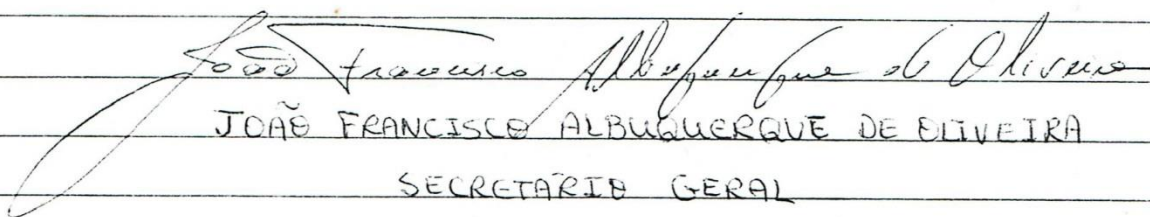 João Francisco Albuquerque de Oliveira
JOÃO FRANCISCO ALBUQUERQUE DE OLIVEIRA
SECRETÁRIO GERAL